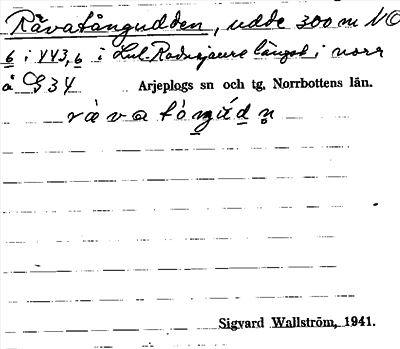 Rävatångudden, udde 300 m NO
6 i 443,6 i Lul.-Radnejaure längst i norr
å G 34
Arjeplogs sn och tg, Norrbottens län.
Sigvard Wallström, 1941.